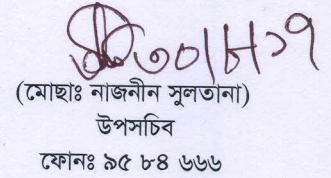 ৩০|৮|১৭
(মোছাঃ নাজনীন সুলতানা)
উপসচিব
ফোনঃ ৯৫ ৮৪ ৬৬৬